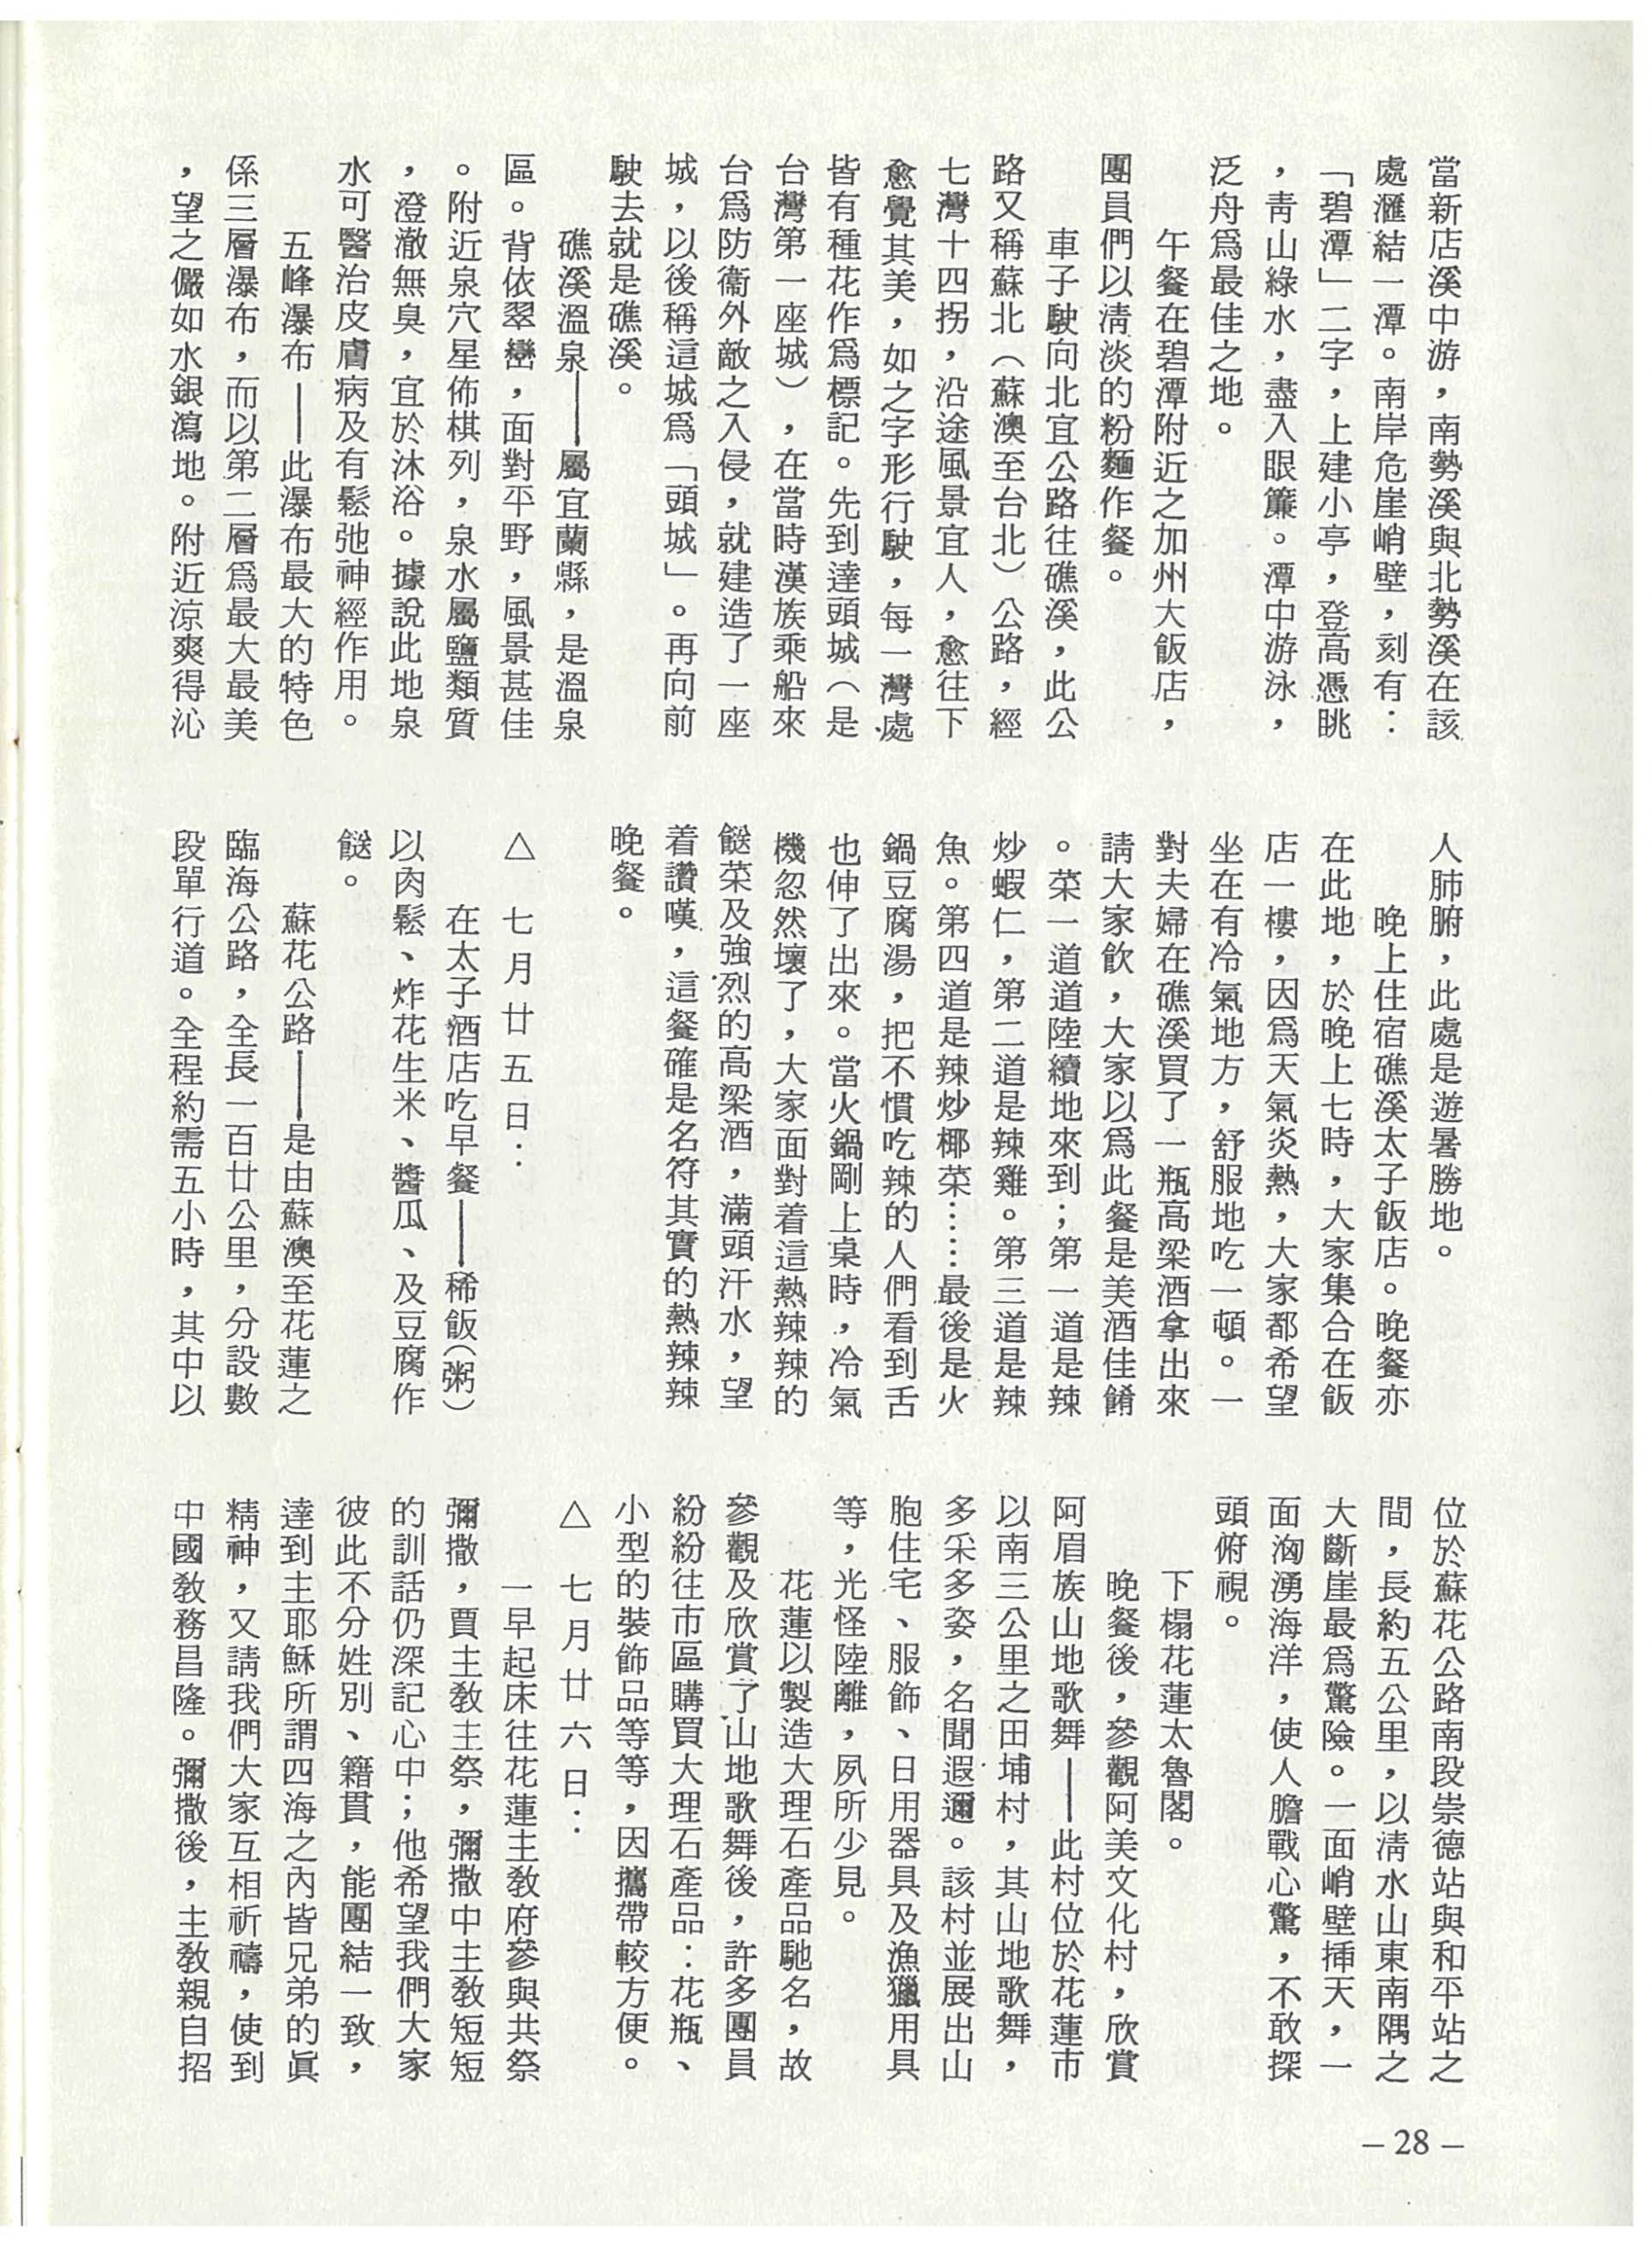 當新店溪中游，南勢溪與北勢溪在該
處滙結一潭。南岸危崖峭壁，刻有：
「碧潭」二字，上建小亭，登高憑眺
，靑山綠水，盡入眼簾。潭中游泳，
泛舟爲最佳之地。
午餐在碧潭附近之加州大飯店，
團員們以淸淡的粉麵作餐。
車子駛向北宜公路往礁溪，此公
路又稱蘇北（蘇澳至台北）公路，經
七灣十四拐，沿途風景宜人，愈往下
愈覺其美，如之字形行駛，每一灣處
皆有種花作爲標記。先到達頭城（是
台灣第一座城），在當時漢族乘船來
台爲防衞外敵之入侵，就建造了一座
城，以後稱這城爲「頭城」。再向前
駛去就是礁溪。
礁溪溫泉——屬宜蘭縣，是溫泉
區。背依翠巒，面對平野，風景甚佳
。附近泉穴星佈棋列，泉水屬鹽類質
，澄澈無臭，宜於沐浴。據說此地泉
水可醫治皮膚病及有鬆弛神經作用。
五峰瀑布——此瀑布最大的特色
係三層瀑布，而以第二層爲最大最美
，望之儼如水銀瀉地。附近涼爽得沁
人肺腑，此處是遊暑勝地。
晚上住宿礁溪太子飯店。晚餐亦
在此地，於晚上七時，大家集合在飯
店一樓，因爲天氣炎熱，大家都希望
坐在有冷氣地方，舒服地吃一頓。一
對夫婦在礁溪買了一瓶高梁酒拿出來
請大家飮，大家以爲此餐是美酒佳餚
。菜一道道陸續地來到；第一道是辣
炒蝦仁，第二道是辣雞。第三道是辣
魚。第四道是辣炒椰菜……最後是火
鍋豆腐湯，把不慣吃辣的人們看到舌
也伸了出來。當火鍋剛上桌時，冷氣
機忽然壞了，大家面對着這熱辣辣的
餸菜及強烈的高梁酒，滿頭汗水，望
着讚嘆，這餐確是名符其實的熱辣辣
晚餐。
△　七月廿五日：
在太子酒店吃早餐——稀飯（粥）
以肉鬆、炸花生米、醬瓜、及豆腐作
餸。
蘇花公路——是由蘇澳至花蓮之
臨海公路，全長一百廿公里，分設數
段單行道。全程約需五小時，其中以
位於蘇花公路南段崇德站與和平站之
間，長約五公里，以淸水山東南隅之
大斷崖最爲驚險。一面峭壁揷天，一
面洶湧海洋，使人膽戰心驚，不敢探
頭俯視。
下榻花蓮太魯閣。
晚餐後，參觀阿美文化村，欣賞
阿眉族山地歌舞——此村位於花蓮市
以南三公里之田埔村，其山地歌舞，
多采多姿，名聞遐邇。該村並展出山
胞住宅、服飾、日用器具及漁獵用具
等，光怪陸離，夙所少見。
花蓮以製造大理石產品馳名，故
參觀及欣賞了山地歌舞後，許多團員
紛紛往市區購買大理石產品：花瓶、
小型的裝飾品等等，因攜帶較方便。
△　七月廿六日：
一早起床往花蓮主敎府參與共祭
彌撒，賈主敎主祭，彌撒中主敎短短
的訓話仍深記心中；他希望我們大家
彼此不分姓別、籍貫，能團結一致，
達到主耶穌所謂四海之內皆兄弟的眞
精神，又請我們大家互相祈禱，使到
中國敎務昌隆。彌撒後，主敎親自招
—28—